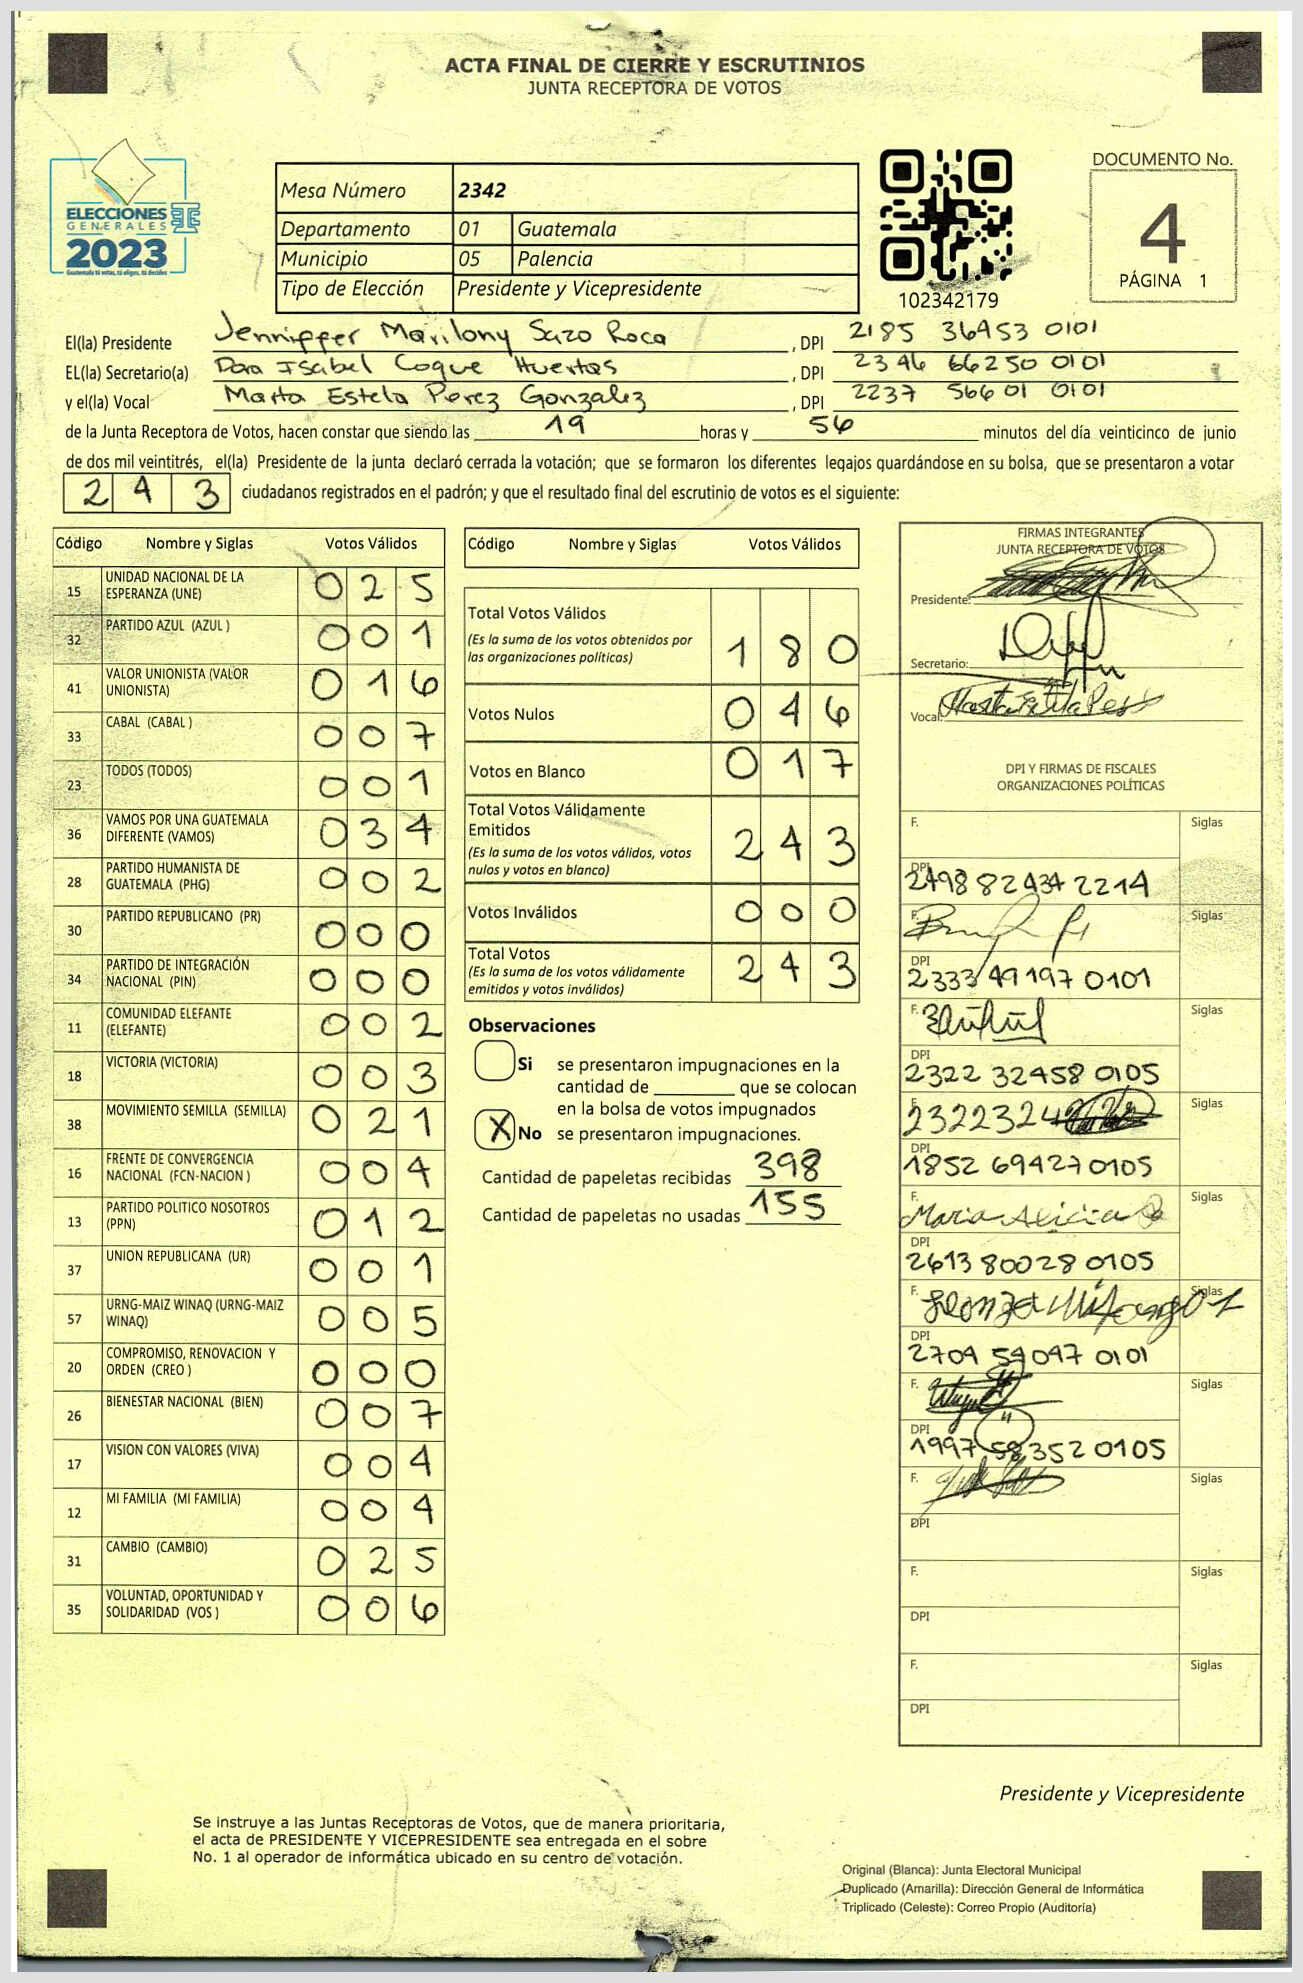 ACTA FINAL DE CIERRE Y ESCRUTINIOS
JUNTA RECEPTORA DE VOTOS
ELECCIONES
GENERALES
2023
Guatemala tú votas, tú eliges, tú decides
Mesa Número 2342
Departamento 01 Guatemala
Municipio 05 Palencia
Tipo de Elección Presidente y Vicepresidente
102342179
DOCUMENTO No.
4
PÁGINA 1
El(la) Presidente Jennipfer Marilony Sazo Roca , DPI 2185 36453 0101
EL(la) Secretario(a) Dora Isabel Coque Huertas , DPI 2346 66250 0101
y el(la) Vocal Marta Estela Perez Gonzalez , DPI 2237 56601 0101
de la Junta Receptora de Votos, hacen constar que siendo las 19 horas y 56 minutos del día veinticinco de junio
de dos mil veintitrés, el(la) Presidente de la junta declaró cerrada la votación; que se formaron los diferentes legajos guardándose en su bolsa, que se presentaron a votar
243 ciudadanos registrados en el padrón; y que el resultado final del escrutinio de votos es el siguiente:
Código Nombre y Siglas Votos Válidos
15 UNIDAD NACIONAL DE LA ESPERANZA (UNE) 025
32 PARTIDO AZUL (AZUL ) 001
41 VALOR UNIONISTA (VALOR UNIONISTA) 016
33 CABAL (CABAL ) 007
23 TODOS (TODOS) 001
36 VAMOS POR UNA GUATEMALA DIFERENTE (VAMOS) 034
28 PARTIDO HUMANISTA DE GUATEMALA (PHG) 002
30 PARTIDO REPUBLICANO (PR) 000
34 PARTIDO DE INTEGRACIÓN NACIONAL (PIN) 000
11 COMUNIDAD ELEFANTE (ELEFANTE) 002
18 VICTORIA (VICTORIA) 003
38 MOVIMIENTO SEMILLA (SEMILLA) 021
16 FRENTE DE CONVERGENCIA NACIONAL (FCN-NACION ) 004
13 PARTIDO POLITICO NOSOTROS (PPN) 012
37 UNION REPUBLICANA (UR) 001
57 URNG-MAIZ WINAQ (URNG-MAIZ WINAQ) 005
20 COMPROMISO, RENOVACION Y ORDEN (CREO ) 000
26 BIENESTAR NACIONAL (BIEN) 007
17 VISION CON VALORES (VIVA) 004
12 MI FAMILIA (MI FAMILIA) 004
31 CAMBIO (CAMBIO) 025
35 VOLUNTAD, OPORTUNIDAD Y SOLIDARIDAD (VOS ) 006
Código Nombre y Siglas Votos Válidos
Total Votos Válidos 180
(Es la suma de los votos obtenidos por
las organizaciones políticas)
Votos Nulos 046
Votos en Blanco 017
Total Votos Válidamente
Emitidos 243
(Es la suma de los votos válidos, votos
nulos y votos en blanco)
Votos Inválidos 000
Total Votos 243
(Es la suma de los votos válidamente
emitidos y votos inválidos)
Observaciones
Si se presentaron impugnaciones en la
cantidad de ________ que se colocan
en la bolsa de votos impugnados
X No se presentaron impugnaciones.
Cantidad de papeletas recibidas 398
Cantidad de papeletas no usadas 155
FIRMAS INTEGRANTES
JUNTA RECEPTORA DE VOTOS
Presidente:
Secretario:
Vocal:
DPI Y FIRMAS DE FISCALES
ORGANIZACIONES POLÍTICAS
F. Siglas
DPI 2498 82434 2214
F. Siglas
DPI 2333 49197 0101
F. Siglas
DPI 2322 32458 0105
F. 2322324 Siglas
DPI 1852 69427 0105
F. Maria Alicia Siglas
DPI 2613 80028 0105
F. Siglas
DPI 2704 59047 0101
F. Siglas
DPI 1997 58352 0105
F. Siglas
DPI
F. Siglas
DPI
F. Siglas
DPI
Presidente y Vicepresidente
Se instruye a las Juntas Receptoras de Votos, que de manera prioritaria,
el acta de PRESIDENTE Y VICEPRESIDENTE sea entregada en el sobre
No. 1 al operador de informática ubicado en su centro de votación.
Original (Blanca): Junta Electoral Municipal
Duplicado (Amarilla): Dirección General de Informática
Triplicado (Celeste): Correo Propio (Auditoría)